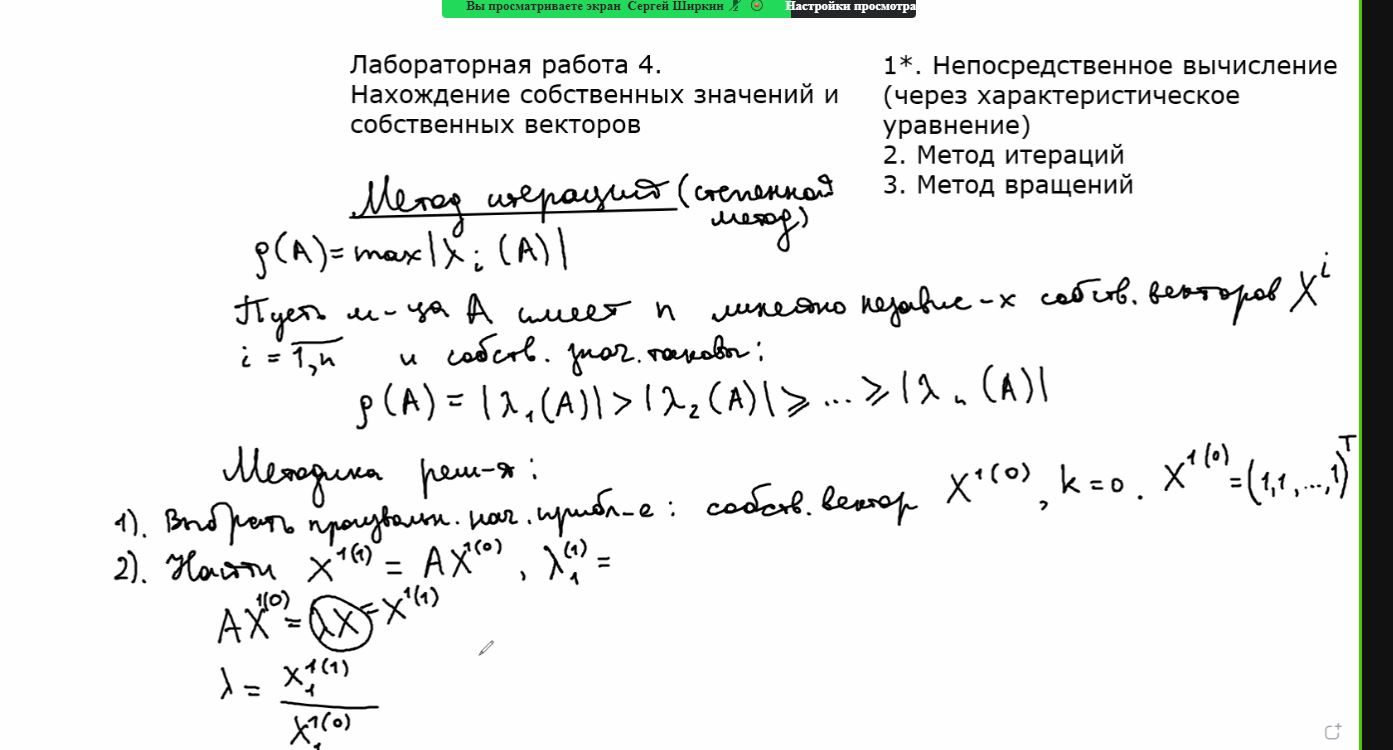 Вы просматриваете экран Сергей Ширкин
Настройки просмотра
Лабораторная работа 4.
Нахождение собственных значений и
собственных векторов
1*. Непосредственное вычисление
(через характеристическое
уравнение)
2. Метод итераций
3. Метод вращений
Метод итераций (степенной
метод)
ρ(A) = max|λᵢ(A)|
Пусть м-ца A имеет n линейно независ-х собств. векторов Xⁱ
i = 1,n и собств. знач. таковы:
ρ(A) = |λ₁(A)| > |λ₂(A)| ⩾ ... ⩾ |λₙ(A)|
Методика реш-я:
1). Выбрать произвольн. нач. прибл-е: собств. вектор X¹⁽⁰⁾, k = 0. X¹⁽⁰⁾ = (1,1,...,1)ᵀ
2). Найти X¹⁽¹⁾ = AX¹⁽⁰⁾, λ₁⁽¹⁾ =
AX¹⁽⁰⁾ = λX = X¹⁽¹⁾
λ = x₁¹⁽¹⁾
x₁¹⁽⁰⁾